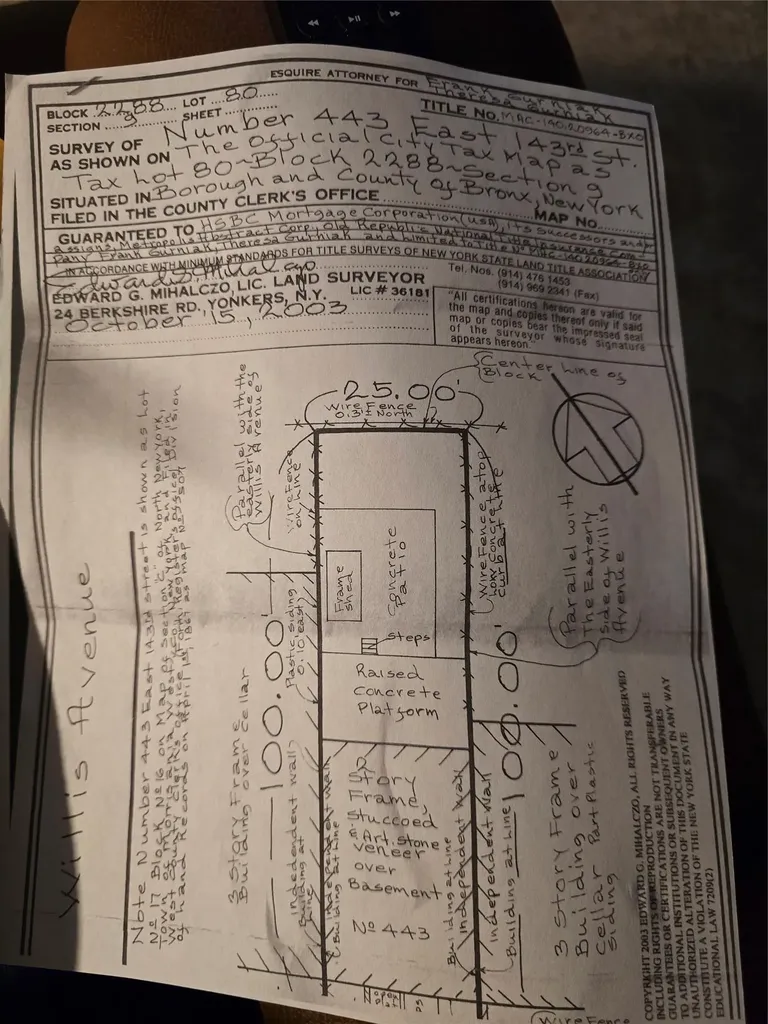 ESQUIRE ATTORNEY FOR Frank Gurniak
Theresa Gurniak
BLOCK 2288 LOT 80
SECTION 9 SHEET
TITLE NO. MAC-140,20964-BXO
SURVEY OF Number 443 East 143rd St.
AS SHOWN ON The Official City Tax Map as
Tax Lot 80~Block 2288~Section 9
SITUATED IN Borough and County of Bronx, New York
FILED IN THE COUNTY CLERK'S OFFICE MAP No.
GUARANTEED TO HSBC Mortgage Corporation (USA), Its Successors and/or
assigns, Metropolis Abstract Corp, Old Republic National Title Insurance Com-
pany Frank Gurniak, Theresa Gurniak and Limited to Title Nº MAC-140,20964-BXO
IN ACCORDANCE WITH MINIMUM STANDARDS FOR TITLE SURVEYS OF NEW YORK STATE LAND TITLE ASSOCIATION
Edward G. Mihalczo
EDWARD G. MIHALCZO, LIC. LAND SURVEYOR
24 BERKSHIRE RD., YONKERS, N.Y. LIC # 36181
October 15, 2003
Tel. Nos. (914) 476 1453
(914) 969 2341 (Fax)
"All certifications hereon are valid for
the map and copies thereof only if said
map or copies bear the impressed seal
of the surveyor whose signature
appears hereon."
Center Line of
Block
25.00'
Wire Fence
0.3'± North
Parallel with the
easterly side of
Willis Avenue
Wire Fence
on Line
Wire Fence atop
curb at Line
Parallel with
The Easterly
side of Willis
Avenue
Frame
Shed
Concrete
Patio
Steps
Raised
Concrete
Platform
Plastic siding
0.10' east
100.00'
100.00'
Willis Avenue
Note Number 443 East 143rd Street is shown as Lot
Nº 17 Block Nº 16 on Map of Section "C" of North New York,
3 Story Frame
Building over Cellar
Independent Wall
Building at
Line
Independent Wall
Building at Line
2
Story
Frame,
Stuccoed
& Art. stone
veneer
over
Basement
Nº 443
Building at Line
Independent Wall
Independent Wall
Building at Line
3 Story Frame
Building over
Cellar Part Plastic
Siding
Wire Fence
COPYRIGHT 2003 EDWARD G. MIHALCZO, ALL RIGHTS RESERVED
INCLUDING RIGHTS OF REPRODUCTION
GUARANTEES OR CERTIFICATIONS ARE NOT TRANSFERABLE
TO ADDITIONAL INSTITUTIONS OR SUBSEQUENT OWNERS
UNAUTHORIZED ALTERATION OF THIS DOCUMENT IN ANY WAY
CONSTITUTE A VIOLATION OF THE NEW YORK STATE
EDUCATIONAL LAW 7209(2)